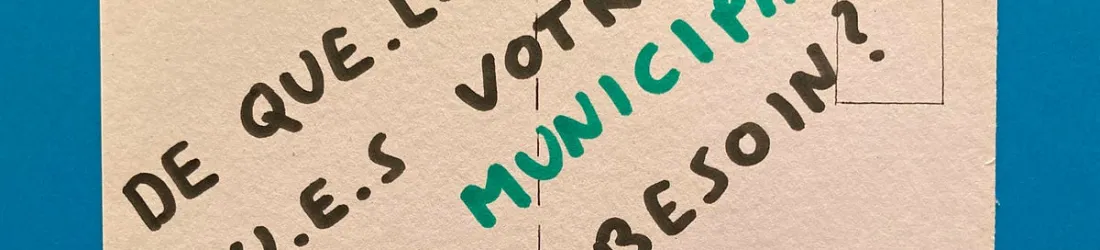 DE QUE.L
U.E.S VOTRE
MUNICIPA
BESOIN?